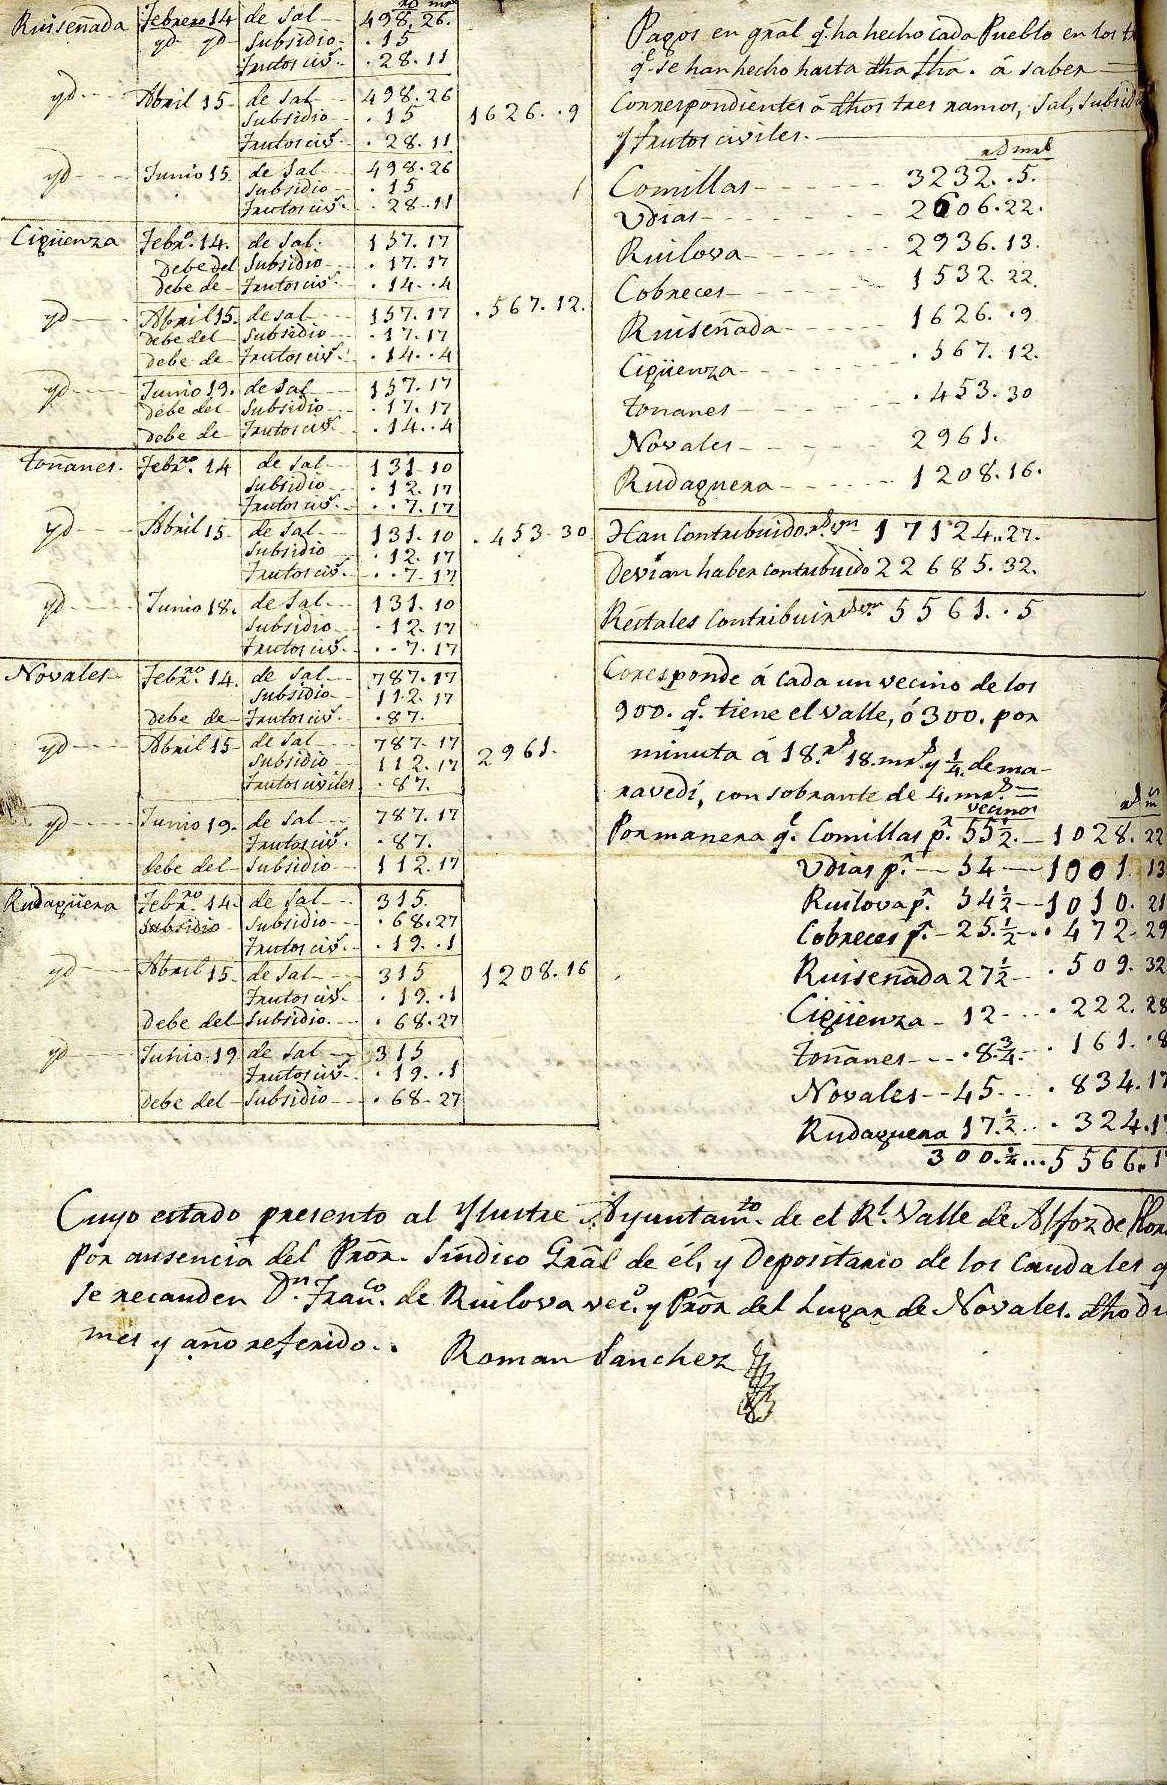 rs mrs
Ruiseñada Febrero 14 de Sal 498.26.
yd yd Subsidio .15
Frutos civs. .28.11
yd Abril 15 de Sal 498.26
Subsidio .15 1626..9
Frutos civs. .28.11
yd Junio 15 de Sal 498.26
Subsidio .15
Frutos civs. .28.11
Cigüenza Febro. 14. de Sal. 157.17
Debe del Subsidio .17.17
Debe de Frutos civs. .14..4
yd Abril 15. de sal 157.17 .567.12.
Debe del Subsidio .17.17
Debe de Frutos civs. .14..4
yd Junio 19. de Sal 157.17
Debe del Subsidio .17.17
Debe de Frutos civs. .14..4
Toñanes. Febro. 14 de Sal 131.10
Subsidio .12.17
Frutos civs. ..7.17
yd Abril 15 de Sal 131.10 .453.30
Subsidio .12.17
Frutos civs. ..7.17
yd Junio 18. de Sal 131.10
Subsidio .12.17
Frutos civs. ..7.17
Novales Febro. 14. de Sal 787.17
Subsidio 112.17
Debe de Frutos civs. .87.
yd Abril 15 de Sal 787.17
Subsidio 112.17 2961.
Frutos civiles .87.
yd Junio 19. de Sal 787.17
Frutos civs. .87.
debe del Subsidio 112.17
Rudagüera Febro. 14. de Sal 315.
Subsidio Subsidio .68.27
Frutos civs. .19..1
yd Abril 15. de Sal 315 1208.16
Frutos civs. .19..1
Debe del Subsidio. .68.27
yd Junio 19 de Sal 315
Frutos civs. .19..1
Debe del Subsidio .68.27
Pagos en grãl q.e ha hecho cada Pueblo en los
q.e se han hecho hasta dha fha. á saber
Correspondientes á dhos tres ramos, Sal, Subsidio
y frutos civiles.
rs mrs
Comillas 3232..5.
Vdias 2606.22.
Ruilova 2936.13.
Cobreces 1532.22.
Ruiseñada 1626..9
Cigüenza .567.12.
Toñanes .453.30
Novales 2961.
Rudaguera 1208.16.
Han Contribuido rs vn 17124..27.
Devian haber contribuido 22685.32.
Restales Contribuir rs vn 5561..5
Coresponde á cada un vecino de los
900. q.e tiene el Valle, ó 300. por
minuta á 18.rs 18.mrs y 1/4. de ma-
ravedi, con sobrante de 4.mrs =
vecinos rs mrs
Por manera q.e Comillas p.r 55 1/2. 1028.22
Vdias p.r 54 1001.13
Ruilova p.r 54 1/2 1010.21
Cobreces p.r 25. 1/2 .472.29
Ruiseñada 27 1/2 .509.32
Cigüenza 12 .222.28
Toñanes .8. 3/4. .161..8
Novales 45 .834.17
Rudaguera 17. 1/2 .324.1
300. 1/4 ... 5566.1
Cuyo estado presento al Ylustre Ayuntam.to de el Rl. Valle de Alfoz de
Por ausencia del Prõr. Síndico Grãl de él, y Depositario de los Caudales q
se recauden Dn. Franco. de Ruilova vec.o y Prõr del Lugar de Novales. dho
mes y año referido.. Roman Sanchez